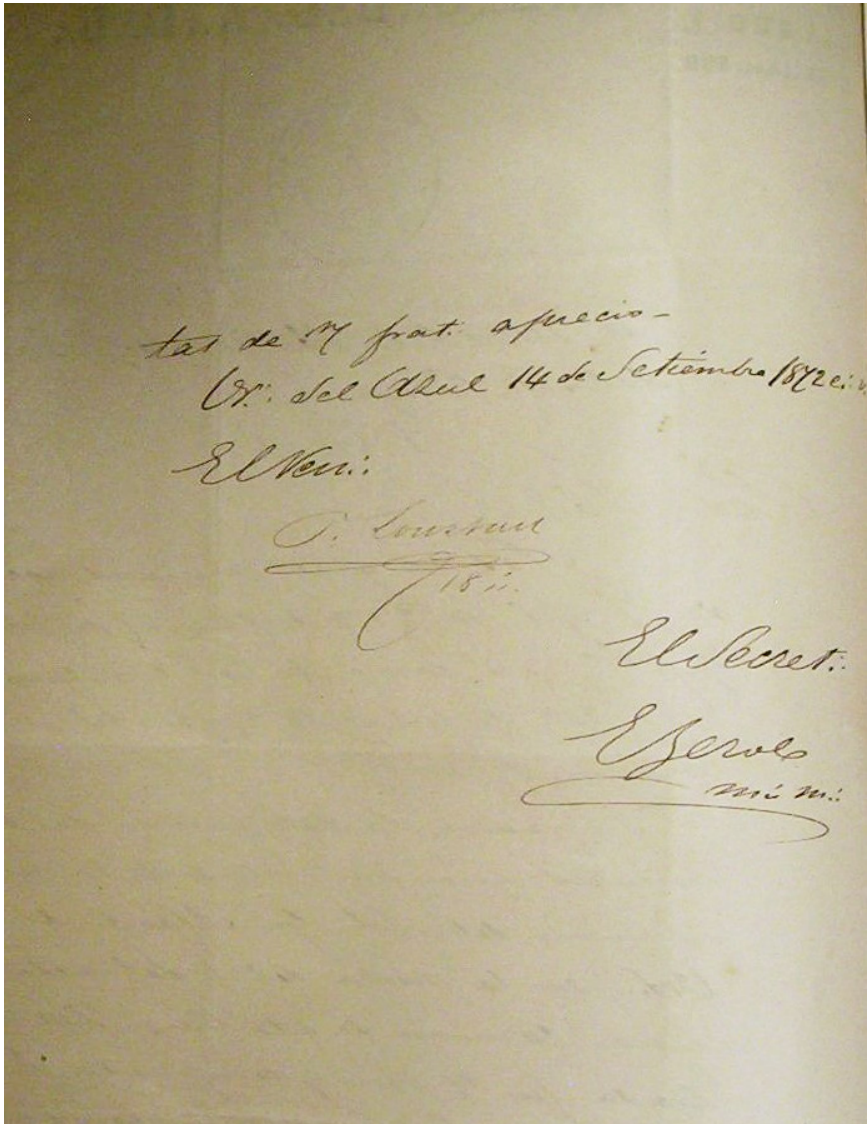 tas de n/ frat. aprecio-
Or∴ del Azul 14 de Setiembre 1872 e∴ v
El Ven∴
P. Loustau
18∴
El Secret∴
m∴ m∴